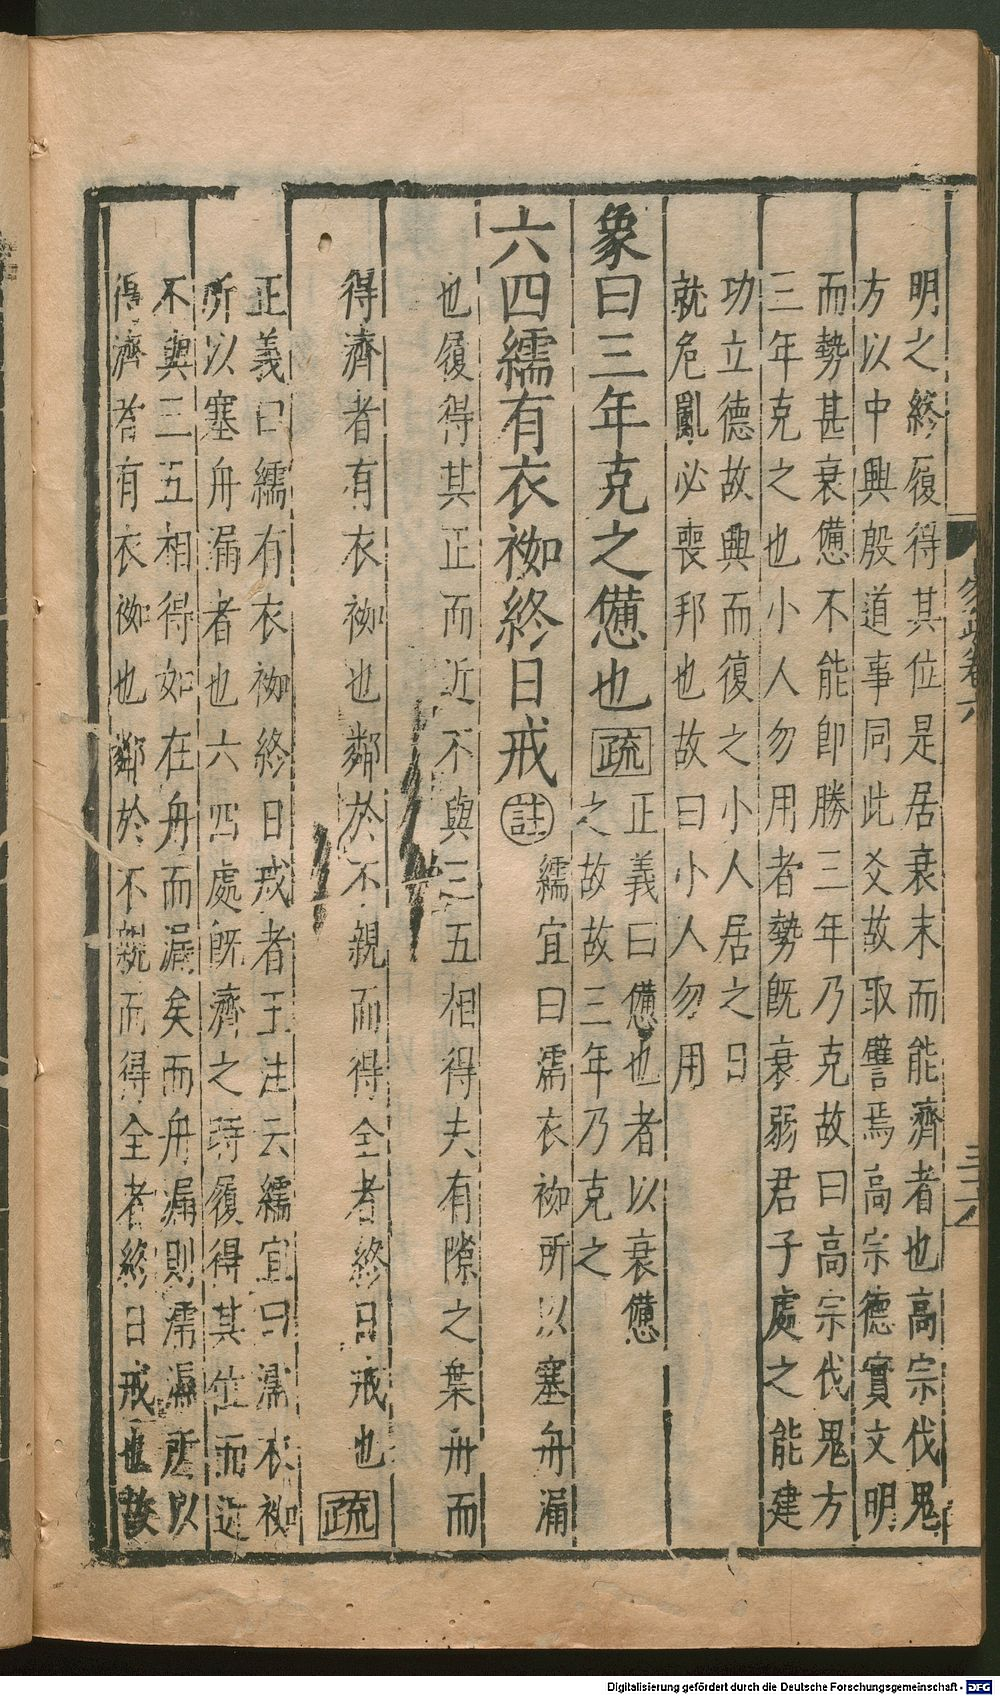 明之終履得其位是居衰末而能濟者也高宗伐鬼
方以中興殷道事同此爻故取譬焉高宗德實文明
而勢甚衰憊不能即勝三年乃克故曰高宗伐鬼方
三年克之也小人勿用者勢旣衰弱君子處之能建
功立德故興而復之小人居之日
就危亂必喪邦也故曰小人勿用
象曰三年克之憊也疏
正義曰憊也者以衰憊
之故故三年乃克之
六四繻有衣袽終日戒註
繻宜曰濡衣袽所以塞舟漏
也履得其正而近不與三五相得夫有隙之棄舟而
得濟者有衣袽也鄰於不親而得全者終日戒也疏
正義曰繻有衣袽終日戒者王注云繻宜曰濡衣袽
所以塞舟漏者也六四處旣濟之時履得其位而近
不與三五相得如在舟而漏矣而舟漏則濡濕所以
得濟者有衣袽也鄰於不親而得全者終日戒也故
卷六
Digitalisierung gefördert durch die Deutsche Forschungsgemeinschaft - DFG